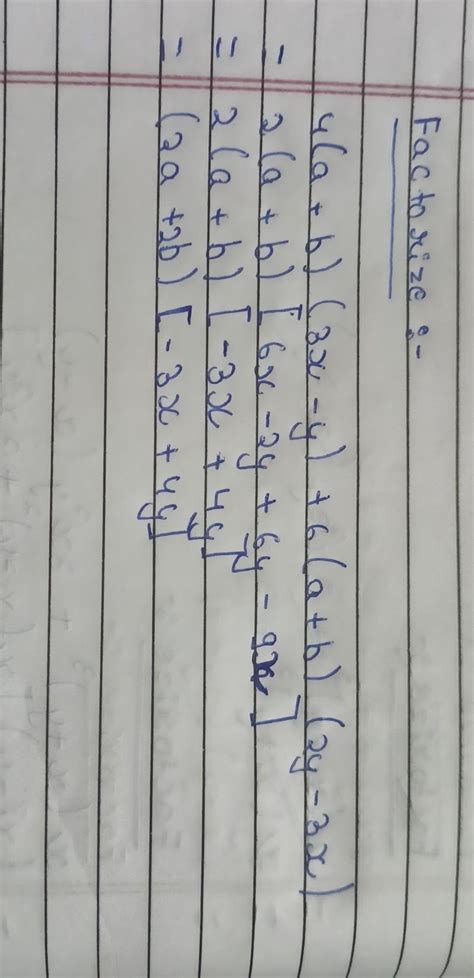 Factorize :-
4(a + b) (3x - y) + 6(a + b) (2y - 3x)
= 2(a + b) [6x - 2y + 6y - 9x]
= 2(a + b) [-3x + 4y]
= (2a + 2b) [-3x + 4y]